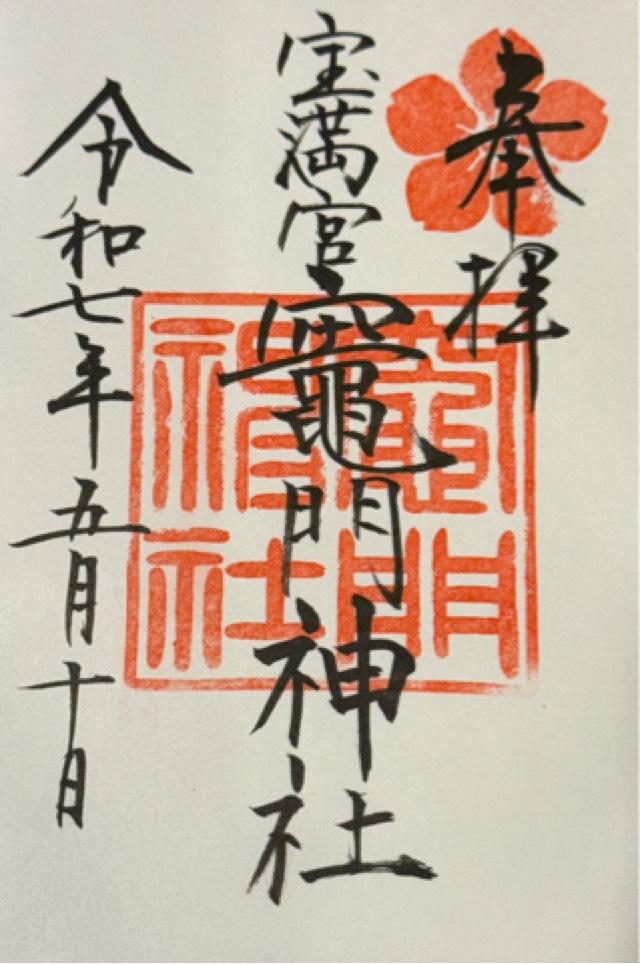 奉拝
宝満宮竈門神社
竈門神社
令和七年五月十日